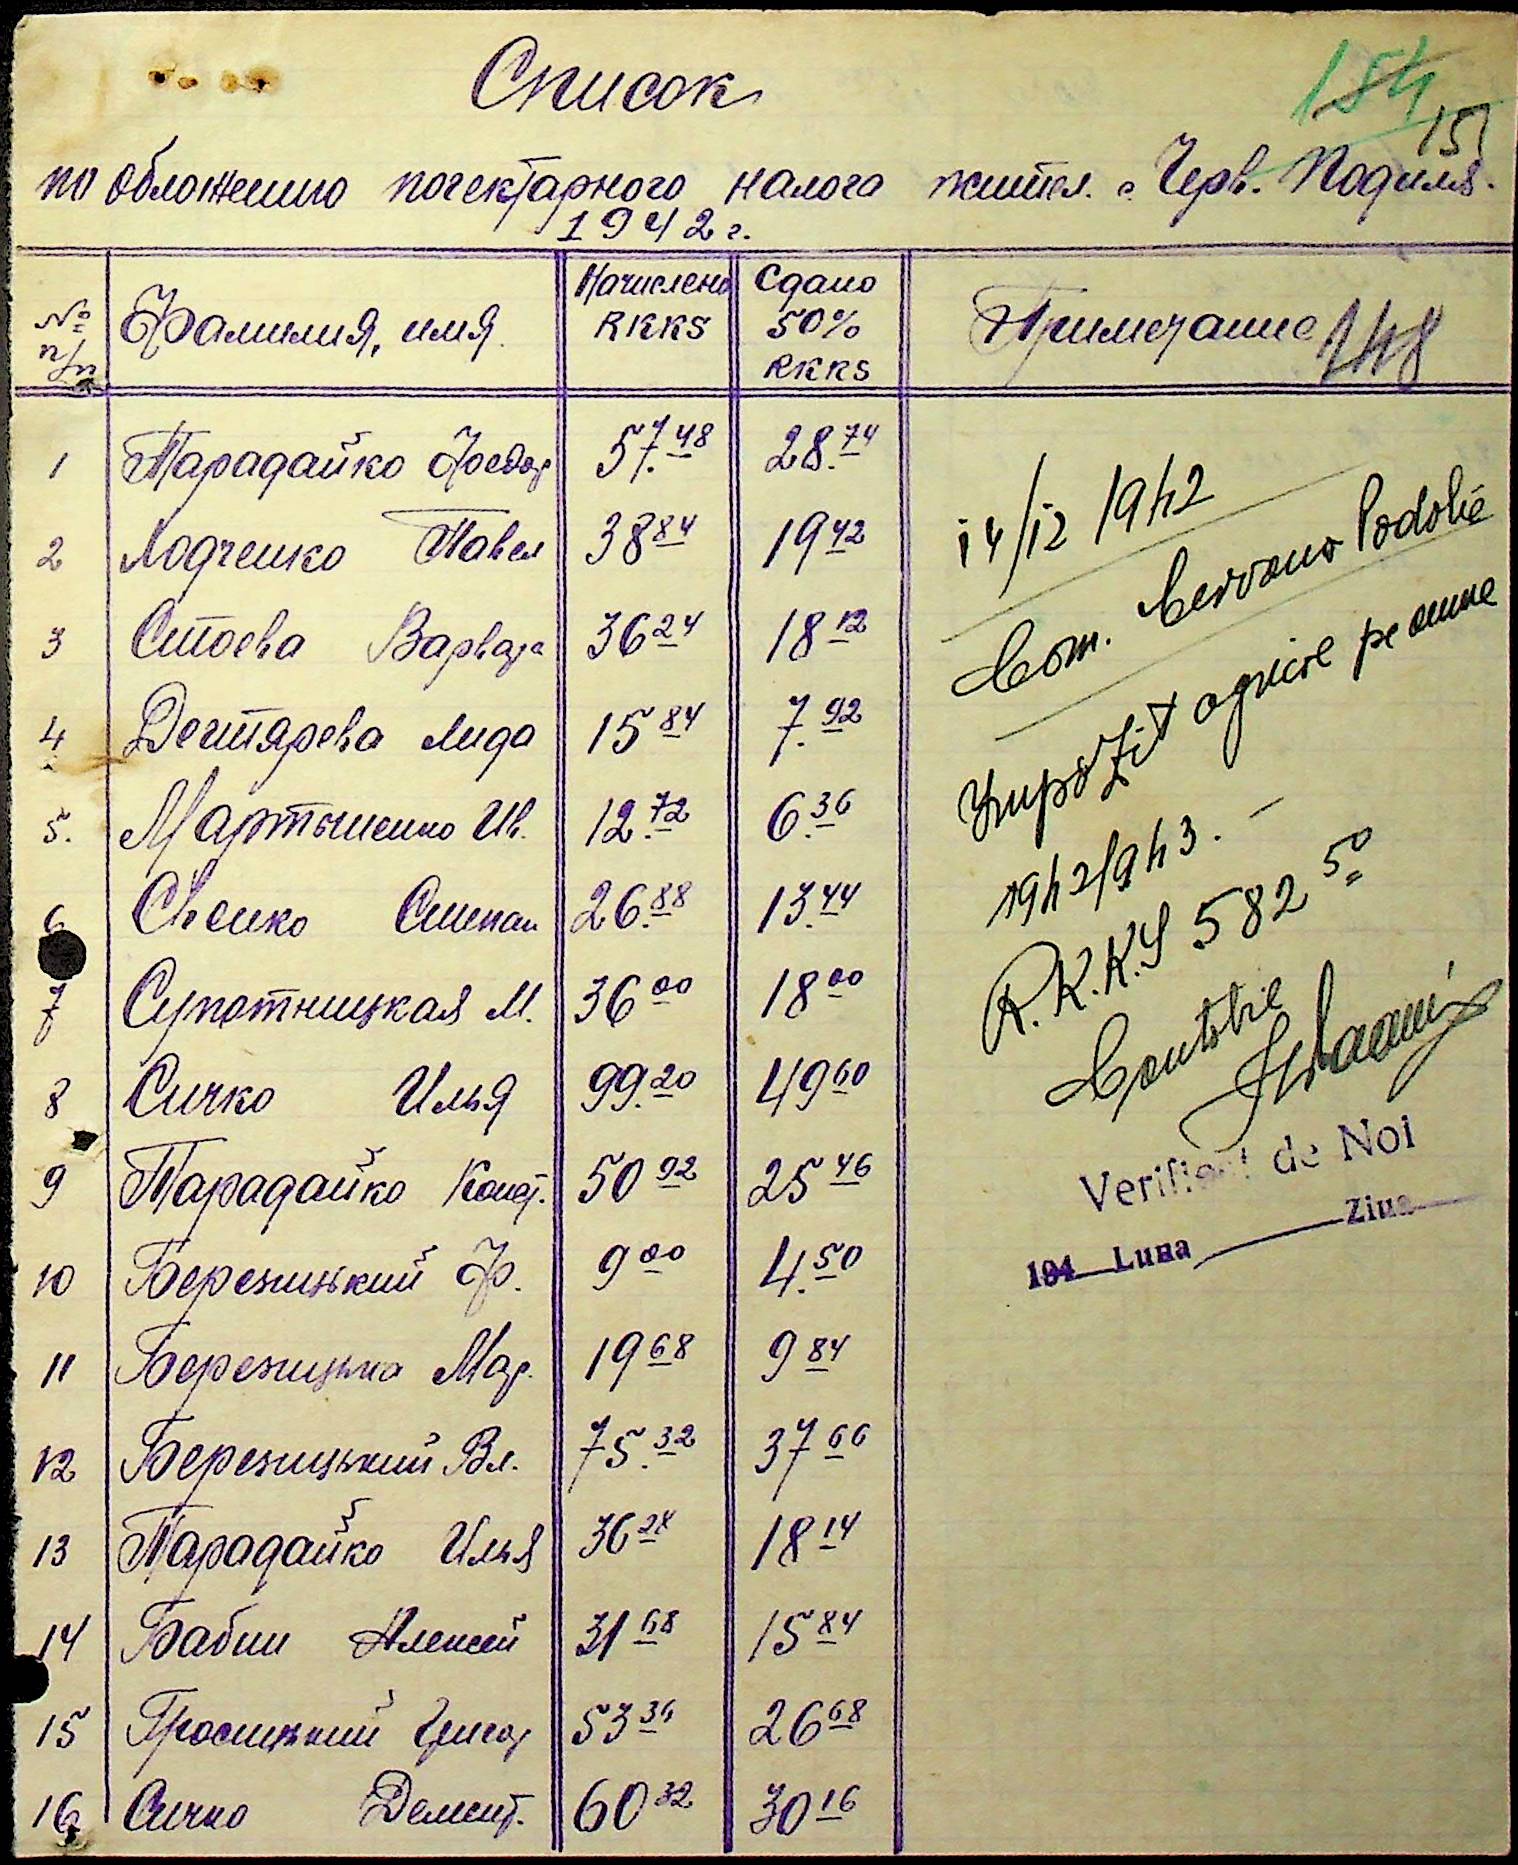 Список
154
151
по обложению погектарного налога жител. с. Черв. Подиля.
1942 г.
№ п/п Фамилия, имя. Начислено RKKS Сдано 50% RKKS Примечание 148
1 Парадайко Феодор 57.48 28.74
2 Лодченко Павел 38 84 19 42
3 Стоева Варвара 36 24 18 12
4 Дегтярева Лида 15 84 7.92
5. Мартыненко Ив. 12.72 6.36
6 Свенко Степан 26.88 13.44
7 Супотницкая М. 36 00 18 00
8 Сичко Илья 99.20 49 60
9 Парадайко Конст. 50 92 25 46
10 Березицький Ф. 9 00 4.50
11 Березицька Мар. 19 68 9 84
12 Березицький Вл. 75.32 37 66
13 Парадайко Илья 36 28 18 14
14 Бабин Алексей 31 68 15 84
15 Гросицкий Григор 53 36 26 68
16 Сичко Демент. 60 32 30 16
14/12 1942
Com. Cervono Podolie
Impozit agricol pe anul
1942/943. -
R.K.K.S 582 50
Contabil
Verificat de Noi
194 Luna Ziua